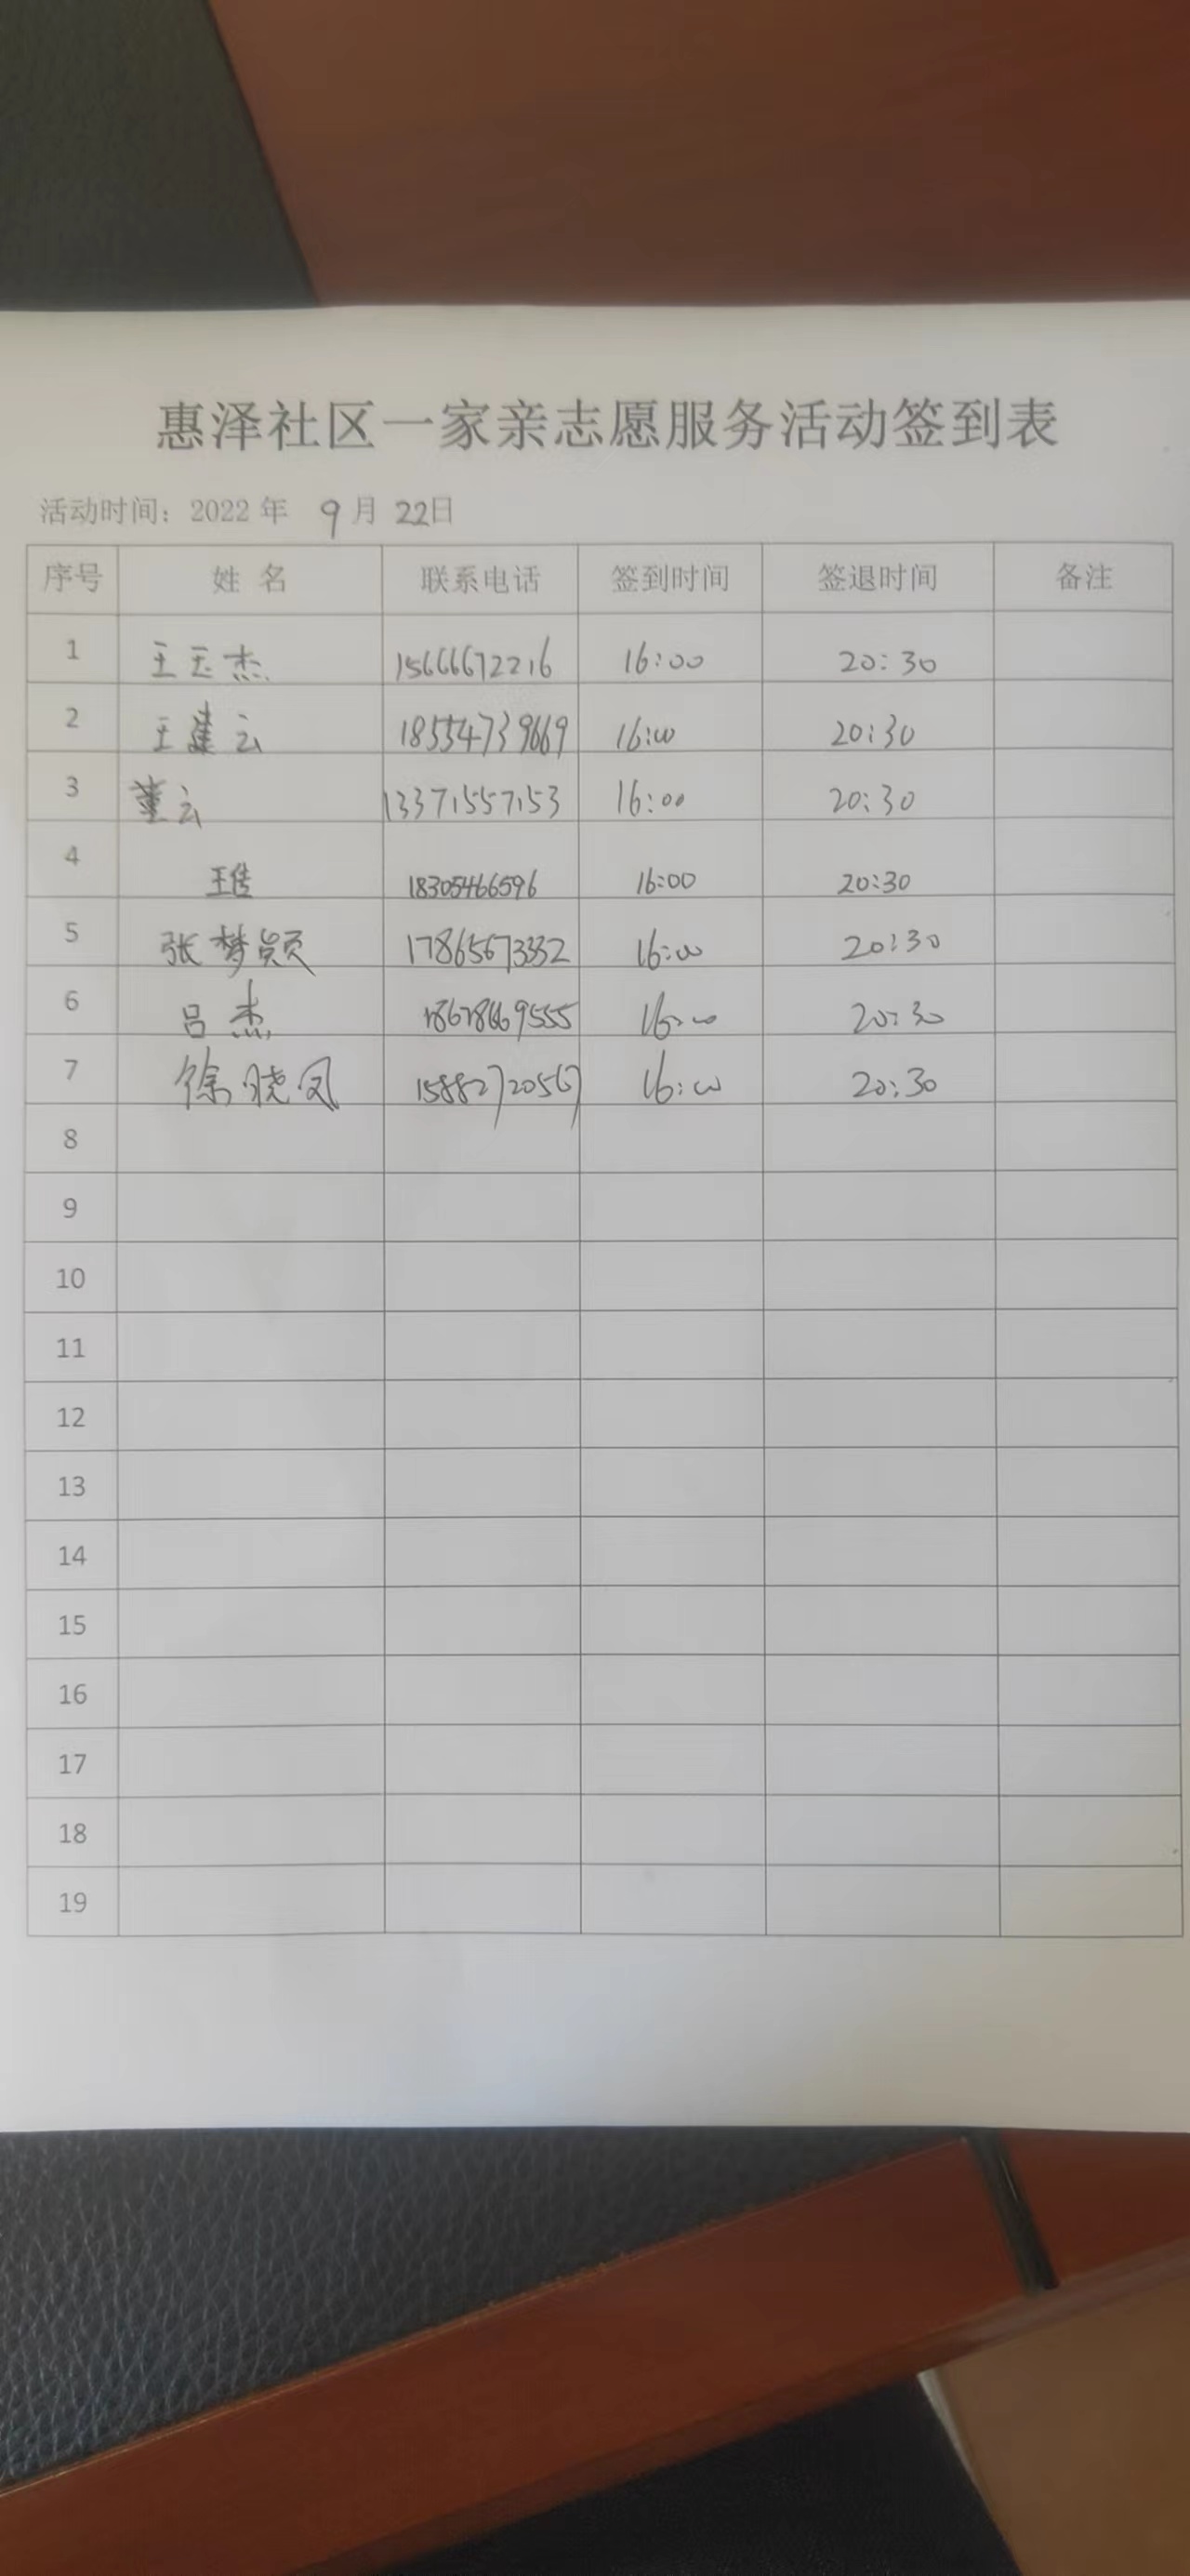 惠泽社区一家亲志愿服务活动签到表
活动时间：2022 年 9 月 22日
序号 姓 名 联系电话 签到时间 签退时间 备注
1 王玉杰 15666672216 16:00 20:30
2 王建云 18554739669 16:00 20:30
3 董云 13371557153 16:00 20:30
4 18305466596 16:00 20:30
5 张梦颖 17865673332 16:00 20:30
6 吕杰 18678669555 16:00 20:30
7 徐晓凤 15882720567 16:00 20:30
8
9
10
11
12
13
14
15
16
17
18
19